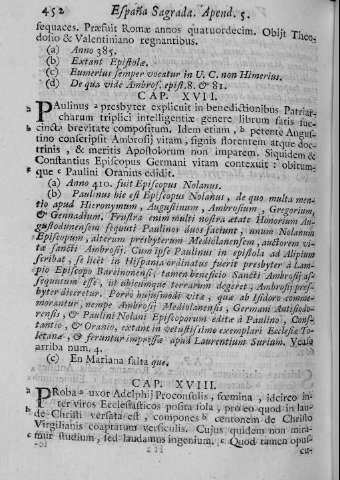 452 España Sagrada. Apend. 5.
sequaces. Præfuit Romæ annos quatuordecim. Obijt Theo-
dosio & Valentiniano regnantibus.
(a) Anno 385.
(b) Extant Epistolæ.
(c) Eumerius semper vocatur in U. C. non Himerius.
(d) De qua vide Ambros. epist. 8. & 81.
CAP. XVII.
a Paulinus a presbyter explicuit in benedictionibus Patriar-
charum triplici intelligentiæ genere librum satis suc-
b cincta brevitate compositum. Idem etiam, b petente Augus-
tino conscripsit Ambrosij vitam, signis florentem atque doc-
trinis, & meritis Apostolorum non imparem. Siquidem &
Constantius Episcopus Germani vitam contexuit: obitum-
c que c Paulini Oranius edidit.
(a) Anno 410. fuit Episcopus Nolanus.
(b) Paulinus hic est Episcopus Nolanus, de quo multa men-
tio apud Hieronymum, Augustinum, Ambrosium, Gregorium,
& Gennadium. Frustra enim multi nostra ætate Honorium Au-
gustodunensem sequuti Paulinos duos faciunt, unum Nolanum
Episcopum, alterum presbyterum Mediolanensem, auctorem vi-
tæ sancti Ambrosij. Cum ipse Paulinus in epistola ad Alipium
scribat, se licet in Hispania ordinatus fuerit presbyter à Lam-
pio Episcopo Barcinonensi tamen beneficio Sancti Ambrosij as-
sequutum esse, ut ubicumque terrarum degeret, Ambrosij pres-
byter diceretur. Porrò hujusmodi vitæ, quæ ab Isidoro comme-
morantur, nempe Ambrosij Mediolanensis, Germani Autisiodo-
rensis, & Paulini Nolani Episcoporum editæ à Paulino, Cons-
tantio, & Oranio, extant in vetustissimo exemplari Ecclesiæ To-
letanæ, & feruntur impressæ apud Laurentium Surium. Vease
arriba num. 4.
(c) En Mariana falta que.
CAP. XVIII.
a PRoba a uxor Adelphij Proconsulis, fœmina, idcirco in-
ter viros Ecclesiasticos posita sola, pro eo quod in lau-
b de Christi versata est, componens b centonem de Christo
Virgilianis coaptatum versiculis. Cujus quidem non mira-
c mur studium, sed laudamus ingenium. c Quod tamen opus-
cu-